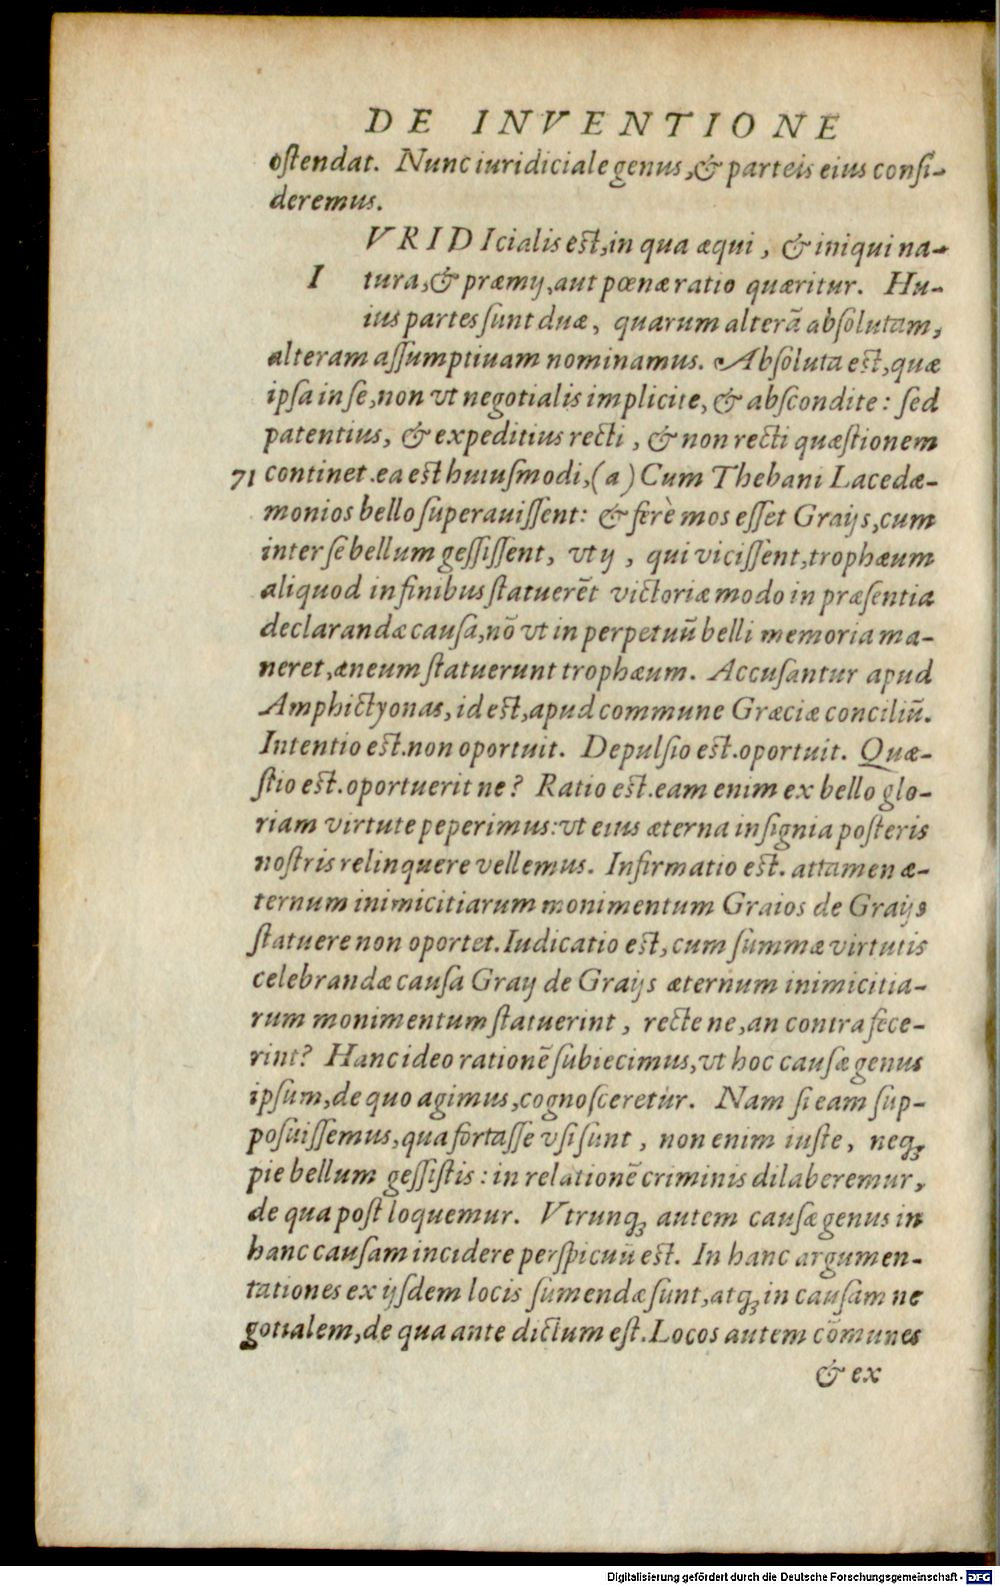 DE INVENTIONE
oſtendat. Nunc iuridiciale genus, & parteis eius conſi-
deremus.
VRIDIcialis est, in qua æqui, & iniqui na-
I tura, & præmij, aut pœnæ ratio quæritur. Hu-
ius partes ſunt duæ, quarum alterā abſolutam,
alteram aſſumptiuam nominamus. Abſoluta est, quæ
ipſa in ſe, non vt negotialis implicite, & abſcondite: ſed
patentius, & expeditius recti, & non recti quæſtionem
71 continet. ea est huiuſmodi, (a) Cum Thebani Lacedæ-
monios bello ſuperauiſſent: & ferè mos eſſet Graijs, cum
inter ſe bellum geſſiſſent, vt ij, qui viciſſent, trophæum
aliquod in finibus ſtatuerēt victoriæ modo in præſentia
declarandæ cauſa, nō vt in perpetuū belli memoria ma-
neret, æneum ſtatuerunt trophæum. Accuſantur apud
Amphictyonas, id est, apud commune Græciæ conciliū.
Intentio est. non oportuit. Depulſio est. oportuit. Quæ-
ſtio est. oportuerit ne? Ratio est. eam enim ex bello glo-
riam virtute peperimus: vt eius æterna inſignia poſteris
noſtris relinquere vellemus. Infirmatio est. attamen æ-
ternum inimicitiarum monimentum Graios de Graijs
ſtatuere non oportet. Iudicatio est, cum ſummæ virtutis
celebrandæ cauſa Graij de Graijs æternum inimicitia-
rum monimentum ſtatuerint, recte ne, an contra fece-
rint? Hanc ideo rationē ſubiecimus, vt hoc cauſæ genus
ipſum, de quo agimus, cognoſceretur. Nam ſi eam ſup-
poſuiſſemus, qua fortaſſe vſi ſunt, non enim iuſte, neq;
pie bellum geſſiſtis: in relationē criminis dilaberemur,
de qua poſt loquemur. Vtrunq; autem cauſæ genus in
hanc cauſam incidere perſpicuū est. In hanc argumen-
tationes ex ijſdem locis ſumendæ ſunt, atq; in cauſam ne
gotialem, de qua ante dictum eſt. Locos autem cōmunes
& ex
Digitalisierung gefördert durch die Deutsche Forschungsgemeinschaft - DFG